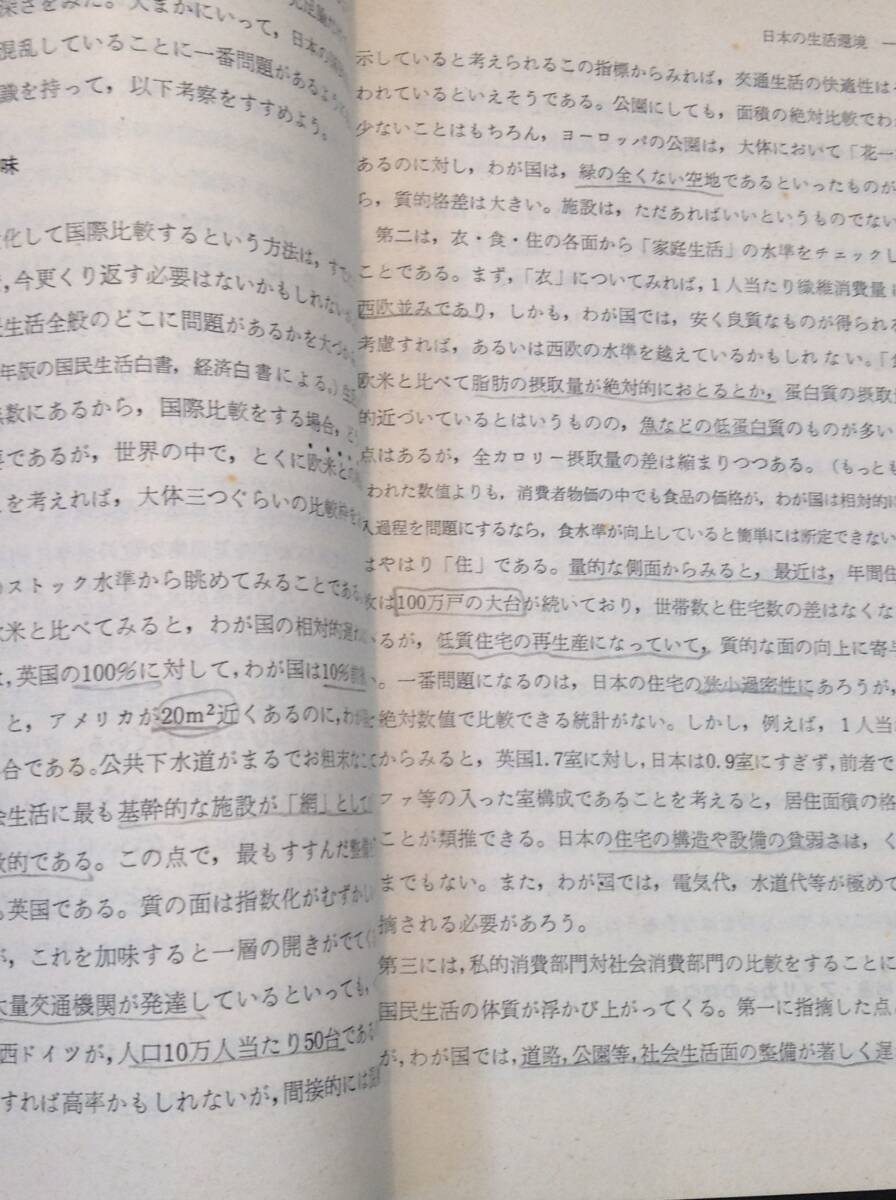 深さをみた。大まかにいって，日本の
混乱していることに一番問題があるよう
識を持って，以下考察をすすめよう。
味
化して国際比較するという方法は，すで
，今更くり返す必要はないかもしれない
生活全般のどこに問題があるかを大づか
年版の国民生活白書，経済白書による。）生活
無数にあるから，国際比較をする場合，ど
であるが，世界の中で，とくに欧米との
を考えれば，大体三つぐらいの比較枠を
のストック水準から眺めてみることである
欧米と比べてみると，わが国の相対的遅れ
，英国の100％に対して，わが国は10％前後
と，アメリカが20m²近くあるのに，わが
合である。公共下水道がまるでお粗末なこ
会生活に最も基幹的な施設が「網」として
徴的である。この点で，最もすすんだ整備
も英国である。質の面は指数化がむずかし
が，これを加味すると一層の開きがでてく
大量交通機関が発達しているといっても，
西ドイツが，人口10万人当たり50台である
すれば高率かもしれないが，間接的には
日本の生活環境 一
示していると考えられるこの指標からみれば，交通生活の快適性は
われているといえそうである。公園にしても，面積の絶対比較でわ
少ないことはもちろん，ヨーロッパの公園は，大体において「花一
あるのに対し，わが国は，緑の全くない空地であるといったものが
ら，質的格差は大きい。施設は，ただあればいいというものでない
第二は，衣・食・住の各面から「家庭生活」の水準をチェックし
ことである。まず，「衣」についてみれば，1人当たり繊維消費量
西欧並みであり，しかも，わが国では，安く良質なものが得られる
考慮すれば，あるいは西欧の水準を越えているかもしれない。「
欧米と比べて脂肪の摂取量が絶対的におとるとか，蛋白質の摂取
的近づいているとはいうものの，魚などの低蛋白質のものが多い
点はあるが，全カロリー摂取量の差は縮まりつつある。（もっとも
われた数値よりも，消費者物価の中でも食品の価格が，わが国は相対的に
入過程を問題にするなら，食水準が向上していると簡単には断定できない
はやはり「住」である。量的な側面からみると，最近は，年間住
数は100万戸の大台が続いており，世帯数と住宅数の差はなくな
いるが，低質住宅の再生産になっていて，質的な面の向上に寄与
い。一番問題になるのは，日本の住宅の狭小過密性にあろうが，
と絶対数値で比較できる統計がない。しかし，例えば，1人当
てからみると，英国1.7室に対し，日本は0.9室にすぎず，前者で
ファ等の入った室構成であることを考えると，居住面積の格
ことが類推できる。日本の住宅の構造や設備の貧弱さは，く
までもない。また，わが国では，電気代，水道代等が極めて
摘される必要があろう。
第三には，私的消費部門対社会消費部門の比較をすることに
国民生活の体質が浮かび上がってくる。第一に指摘した点
が，わが国では，道路，公園等，社会生活面の整備が著しく遅